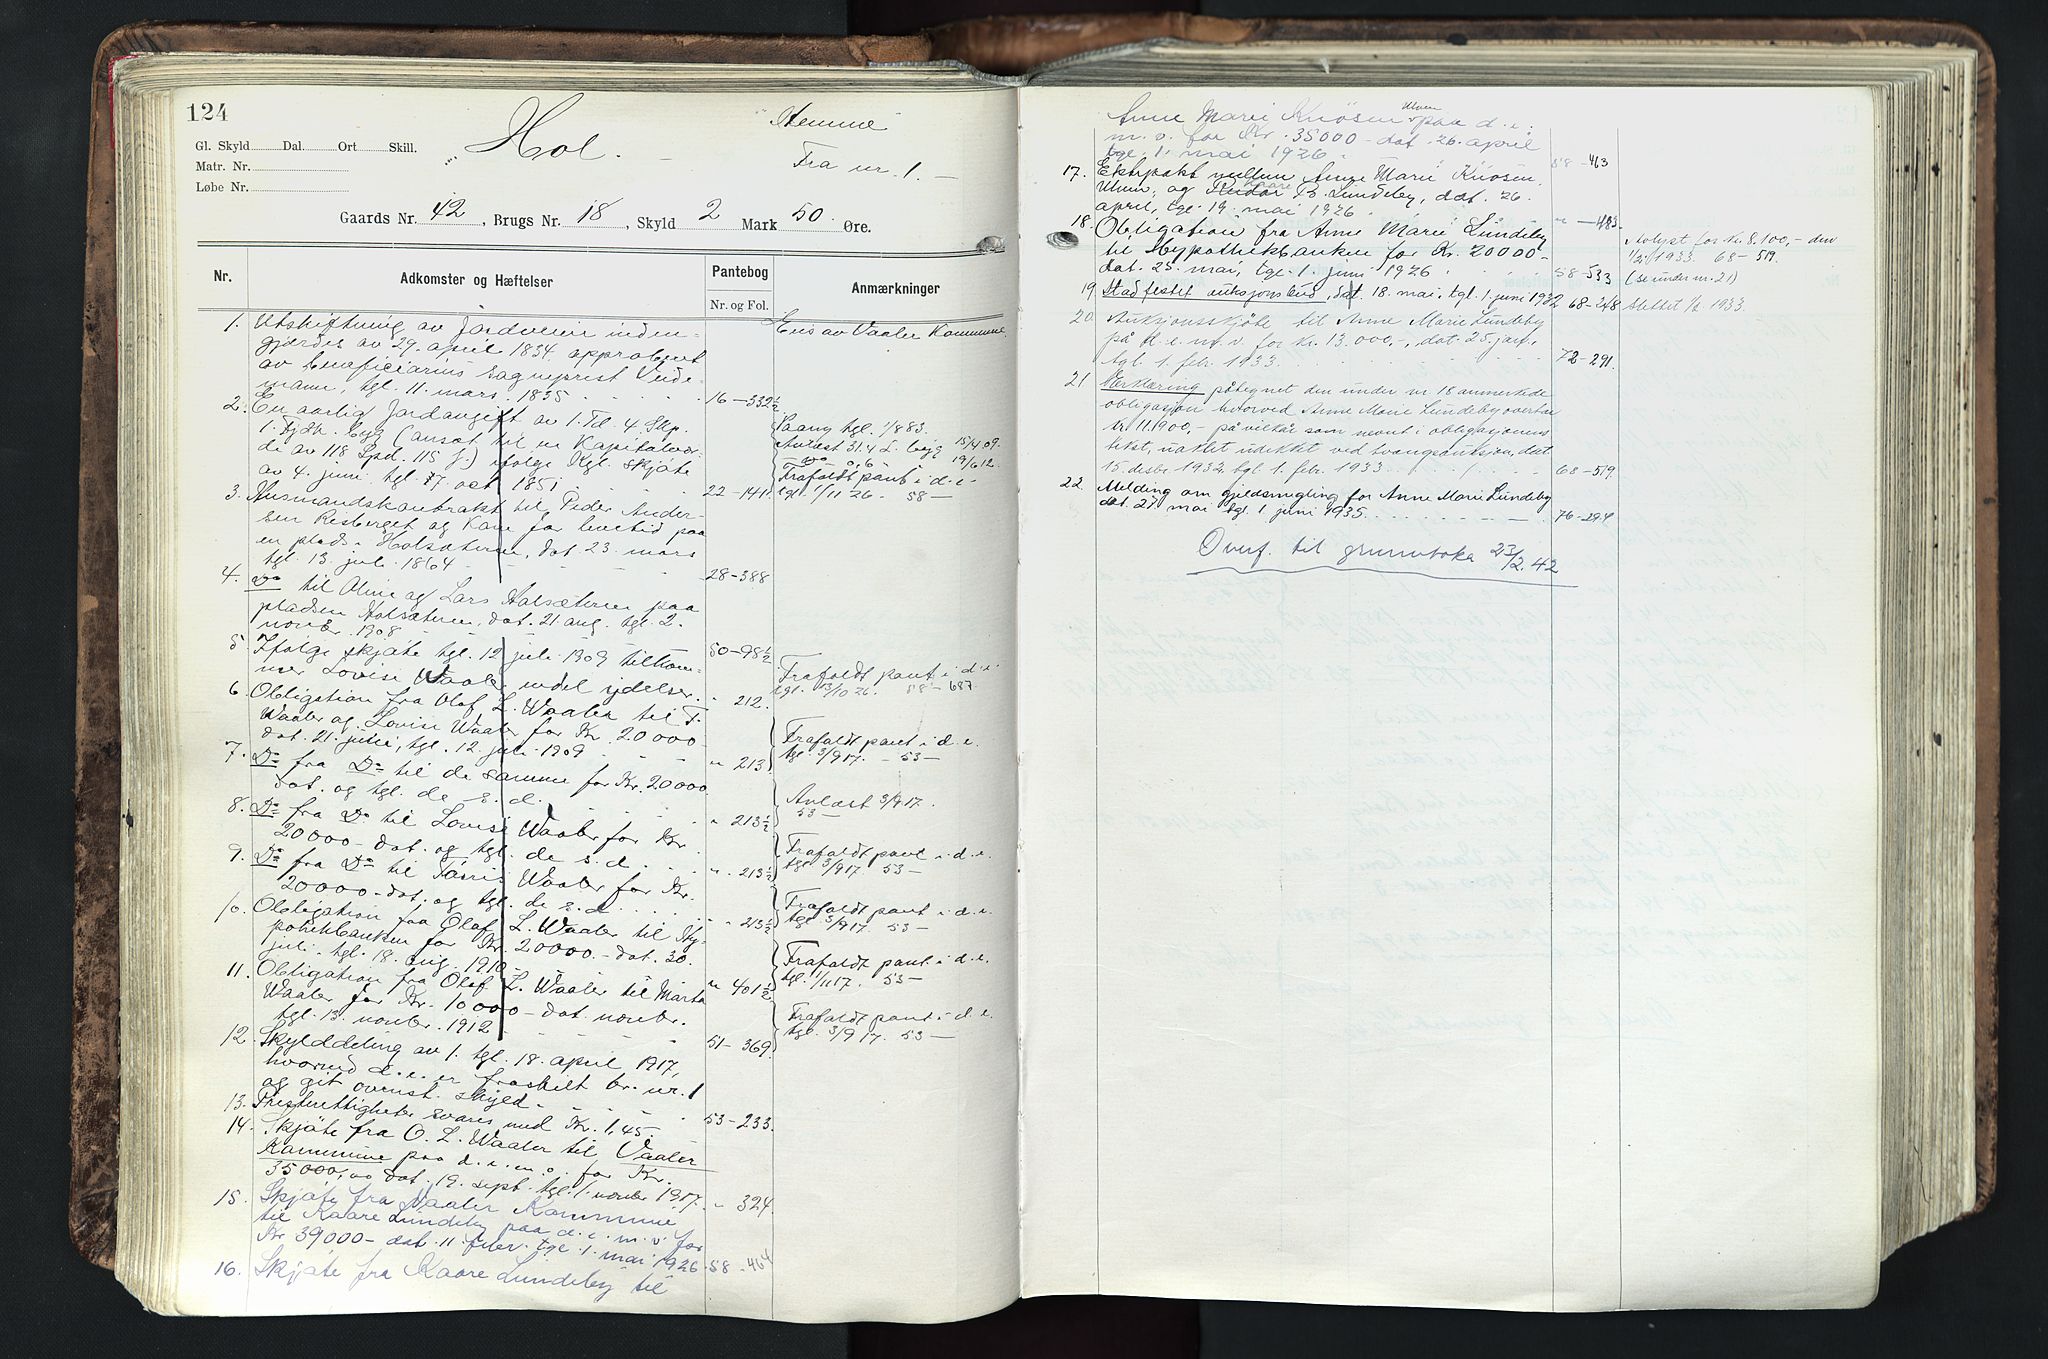 124
"Hemme"
Gl. Skyld Dal. Ort Skill.
" Hol. -
Matr. Nr.
Fra nr. 1. -
Løbe Nr.
Gaards Nr. 42, Brugs Nr. 18, Skyld 2 Mark 50 Øre.
Nr. Adkomster og Hæftelser Pantebog Anmærkninger
Nr. og Fol.
1. Utskiftning av Jordveiin inden-
gjerdes av 29. april 1834. approberet
av beneficiarius sogneprest
mann, tgl. 11. mars. 1835 16-332½
Eies av Vaaler Kommune
2. En aarlig Jordavgift av 1. Td. 4. Skp.
1. Fjdk. byg (ansat til en Kapitalvær-
di av 118 Spd. 115 s.) ifølge Kgl. skjøte
av 4. juni, tgl. 17 oct 1851 22-141
Paaeng tgl. 1/8 83.
15/4 09.
19/6 12.
Frafaldt pant i d. e.
tgl. 1/11 26. 58-
3. Husmandskontrakt til Peder Ander-
sen Resberget og Kone for levetid paa
en plads i Holsæteren, dat. 23. mars
tgl. 13. juli 1864 28-388
4. Do til Oline og Lars Holsæteren paa
pladsen Holsæteren, dat. 21 aug. tgl. 2.
novbr. 1908 50-98½
5. Ifølge skjøte tgl. 12 juli 1909 tilkom-
mer Lovise Waaler endel ydelser. " 212.
Frafaldt pant i d. e.
tgl. 13/10 26. 58-687.
6. Obligation fra Olof L. Waaler til T.
Waaler og Lovise Waaler for Kr. 20000
dat. 21. juni, tgl. 12. juli 1909 " 213
Frafaldt pant i d. e.
tgl. 3/9 17. - 53-
7. Do fra Do til de samme for Kr. 20000
dat. og tgl. de s. d. " 213½
Avlæst 3/9 17.
53-
8. Do fra Do til Lovise Waaler for Kr.
20000- dat. og tgl. de s. d. " 213½
Frafaldt pant i d. e.
tgl. 3/9 17. 53-
9. Do fra Do til Waaler for Kr.
20000- dat. og tgl. de s. d. " 213½
Frafaldt pant i d. e.
tgl. 3/9 17. 53-
10. Obligation fra Olof L. Waaler til Hy-
pothekbanken for Kr. 20000.- dat. 30.
juli, tgl. 18. aug. 1910 " 401½
Frafaldt pant i d. e.
tgl. 1/11 17. 53-
11. Obligation fra Olof L. Waaler til Marta
Waaler for Kr. 10000- dat. novbr.
tgl. 13. novbr. 1912 51-369
Frafaldt pant i d. e.
tgl. 3/9 17. 53-
12. Skylddeling av 1. tgl. 18. april 1917,
hvorved d. e. er fraskilt br. nr. 1
og git ovenst. skyld 53-233.
13. Presterettigheter svares med Kr. 1,45.
14. Skjøte fra O. L. Waaler til Vaaler
Kommune paa d. e. m. v. for Kr.
35000,00 dat. 19. sept. tgl. 1. novbr 1917. " 324
15. Skjøte fra Vaaler Kommune
til Kaare Lundeby paa d. e. m. v. for
Kr 39000- dat. 11. febr. tgl. 1. mai 1926 58-464
16. Skjøte fra Kaare Lundeby til
Anne Marie Knösen Ulven paa d. e.
m. v. for Kr. 35000- dat. 26. april
tgl. 1. mai 1926. 58-463
17. Ektepakt mellem Anne Marie Knösen
Ulven, og Kaare B. Lundeby, dat. 26.
april, tgl. 19. mai 1926. "-483
18. Obligation fra Anne Marie Lundeby
til Hypothekbanken for Kr. 20000-
dat. 25. mai, tgl. 1. juni 1926 58-533
Avlyst for Kr. 8.100,- den
1933. 68-519.
(se under nr. 21)
19 Stadfestet auksjonsbud, dat. 18. mai, tgl. 1. juni 1932 68-248 Slettet 1/2 1933.
20. Auksjonsskjøte til Anne Marie Lundeby
på d. e. m. v. for kr. 13.000,-, dat. 25. jan.,
tgl. 1. febr. 1933. 72-291.
21 Erklæring påtegnet den under nr 18 anmerkede
obligasjon hvorved Anne Marie Lundeby overtar
kr 11.900,- på vilkår som nevnt i obligasjonens
tekst, uaktet udekket ved tvangsauksjon, dat
15. desbr 1932, tgl 1. febr. 1933 68-519.
22. Melding om gjeldsmegling for Anne Marie Lundeby
dat. 27 mai tgl. 1 juni 1935 76-294
Overf. til grunnboka 23/2. 42